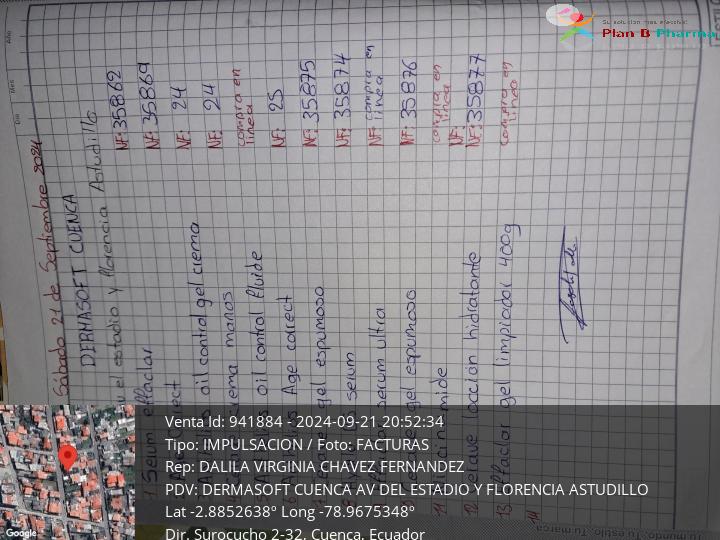 Su solución más efectiva!
Plan B Pharma
Día Mes Año
Sábado 21 de Septiembre 2024
DERMASOFT CUENCA
el estadio y florencia Astudillo
1 Serum effaclar NF: 35862
NF: 35869
oil control gel crema NF: 24
crema manos NF: 24
oil control fluide compra en linea
Age correct NF: 25
gel espumoso NF: 35875
serum NF: 35874
serum ultra NF: compra en linea
gel espumoso NF: 35876
11 compra en linea
12 locción hidratante NF: NF: 35877
13 effaclar gel limpiador 400g compra en linea
14
Google
Venta Id: 941884 - 2024-09-21 20:52:34
Tipo: IMPULSACION / Foto: FACTURAS
Rep: DALILA VIRGINIA CHAVEZ FERNANDEZ
PDV: DERMASOFT CUENCA AV DEL ESTADIO Y FLORENCIA ASTUDILLO
Lat -2.8852638º Long -78.9675348º
Dir. Surocucho 2-32, Cuenca, Ecuador